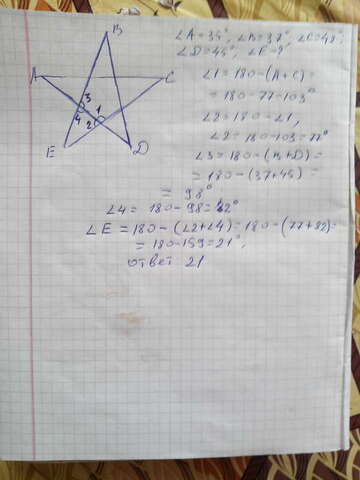 B
A
C
3 1
4 2
E
D
∠A=35°, ∠B=37°, ∠C=42°,
∠D=45°, ∠E=?
∠1=180-(A+C)=
=180-77=103°
∠2=180-∠1,
∠2=180-103=77°
∠3=180-(B+D)=
=180-(37+45)=
=98°
∠4=180-98=82°
∠E=180-(∠2+∠4)=180-(77+82)=
=180-159=21°,
ответ 21